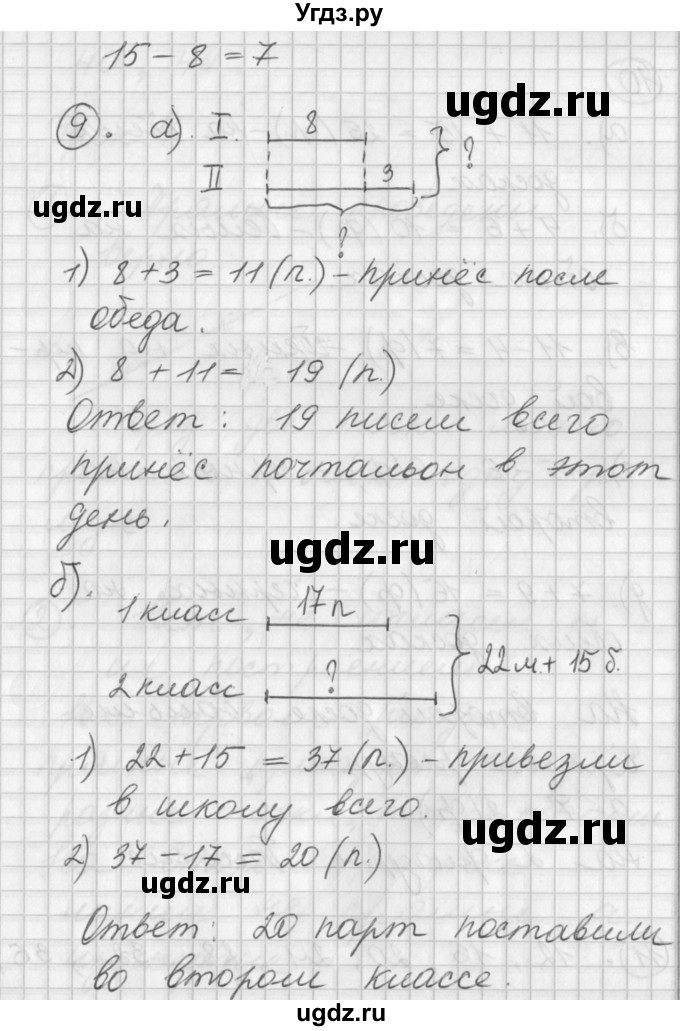 Угдз.ру
15 - 8 = 7
ugdz.ru
9. а). I. 8
II 3 ?
ugdz.ru
?
1) 8 + 3 = 11 (п.) - принёс после
обеда.
ugdz.ru
2) 8 + 11 = 19 (п.)
Ответ: 19 писем всего
принёс почтальон в этот
день.
ugdz.ru
б).
1 класс 17 п
ugdz.ru
? 22 м. + 15 б.
2 класс
1) 22 + 15 = 37 (п.) - привезли
в школу всего.
ugdz.ru
2) 37 - 17 = 20 (п.)
ugdz.ru
Ответ: 20 парт поставили
во втором классе.
ugdz.ru